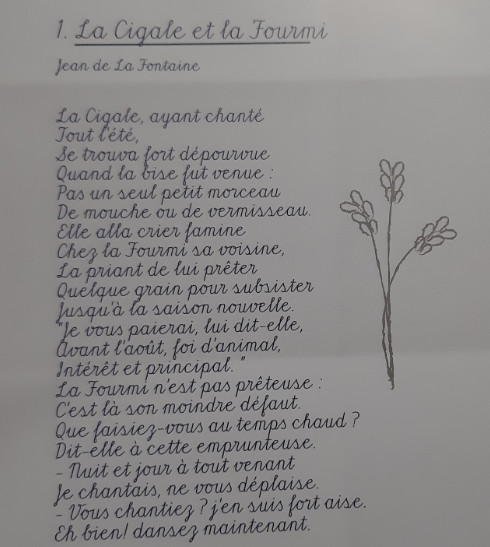 1. La Cigale et la Fourmi
Jean de La Fontaine
La Cigale, ayant chanté
Tout l'été,
Se trouva fort dépourvue
Quand la bise fut venue :
Pas un seul petit morceau
De mouche ou de vermisseau.
Elle alla crier famine
Chez la Fourmi sa voisine,
La priant de lui prêter
Quelque grain pour subsister
Jusqu'à la saison nouvelle.
"Je vous paierai, lui dit-elle,
Avant l'août, foi d'animal,
Intérêt et principal."
La Fourmi n'est pas prêteuse :
C'est là son moindre défaut.
Que faisiez-vous au temps chaud ?
Dit-elle à cette emprunteuse.
- Nuit et jour à tout venant
Je chantais, ne vous déplaise.
- Vous chantiez ? j'en suis fort aise.
Eh bien! dansez maintenant.